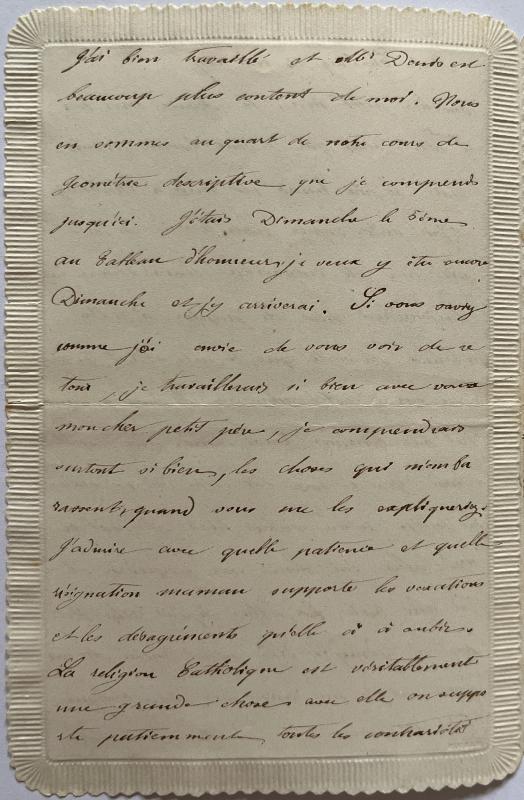 J'ai bien travaillé et Mr Denis est
beaucoup plus content de moi. Nous
en sommes au quart de notre cours de
Géométrie descriptive que je comprends
jusqu'ici. J'étais Dimanche le 5ème
au tableau d'honneur, je veux y être encore
Dimanche et j'y arriverai. Si vous saviez
comme j'ai envie de vous voir de re
tour, je travaillerais si bien avec vous
mon cher petit père, je comprendrais
surtout si bien, les choses qui m'emba
rassent, quand vous me les expliqueriez.
J'admire avec quelle patience et quelle
résignation maman supporte les vexations
et les désagréments qu'elle à à subir.
La religion Catholique est véritablement
une grande chose avec elle on suppo
rte patiemment toutes les contrariétés